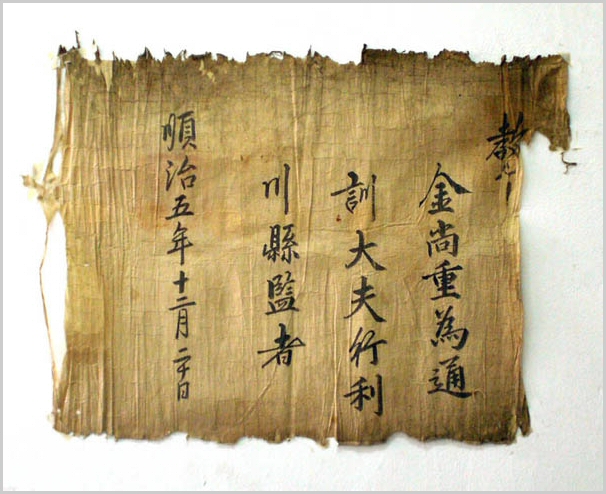 教
金尚重為通
訓大夫行利
川縣監者
順治五年十二月二十日